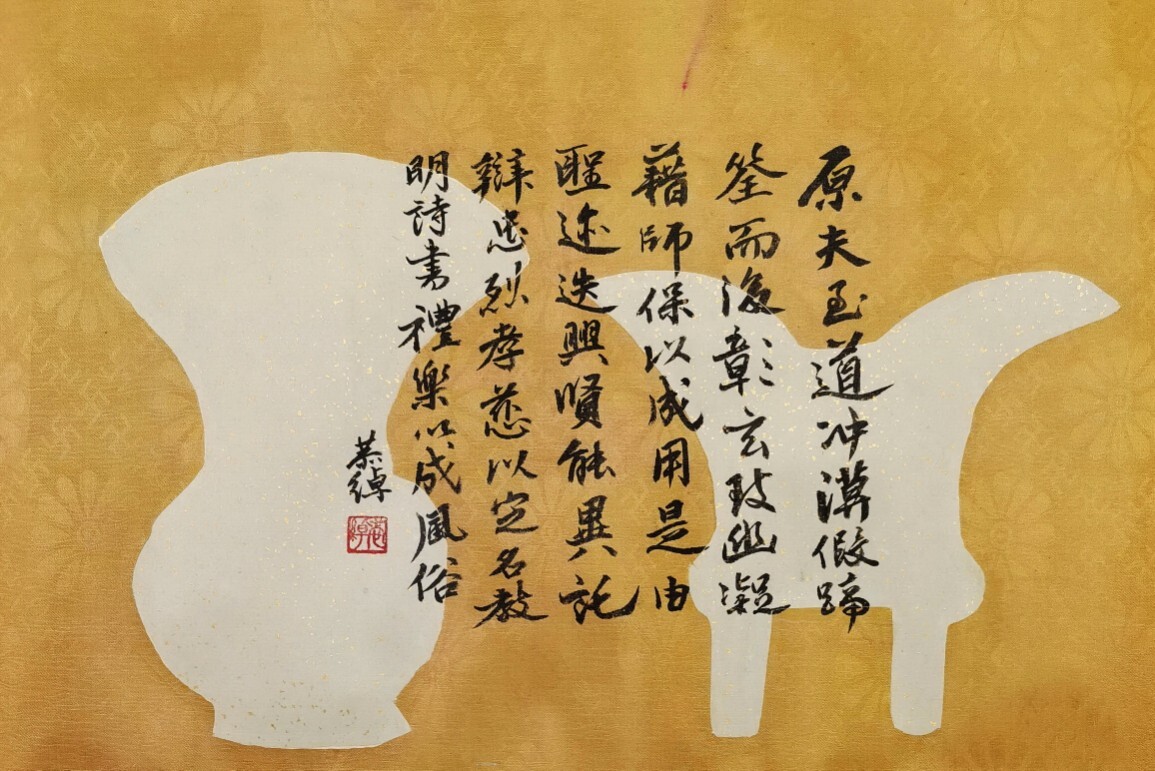 原夫至道冲漠假蹄
筌而後彰玄致幽凝
藉師保以成用是由
聖迹迭興賢能異託
辯忠烈孝慈以定名教
明詩書禮樂以成風俗
恭綽